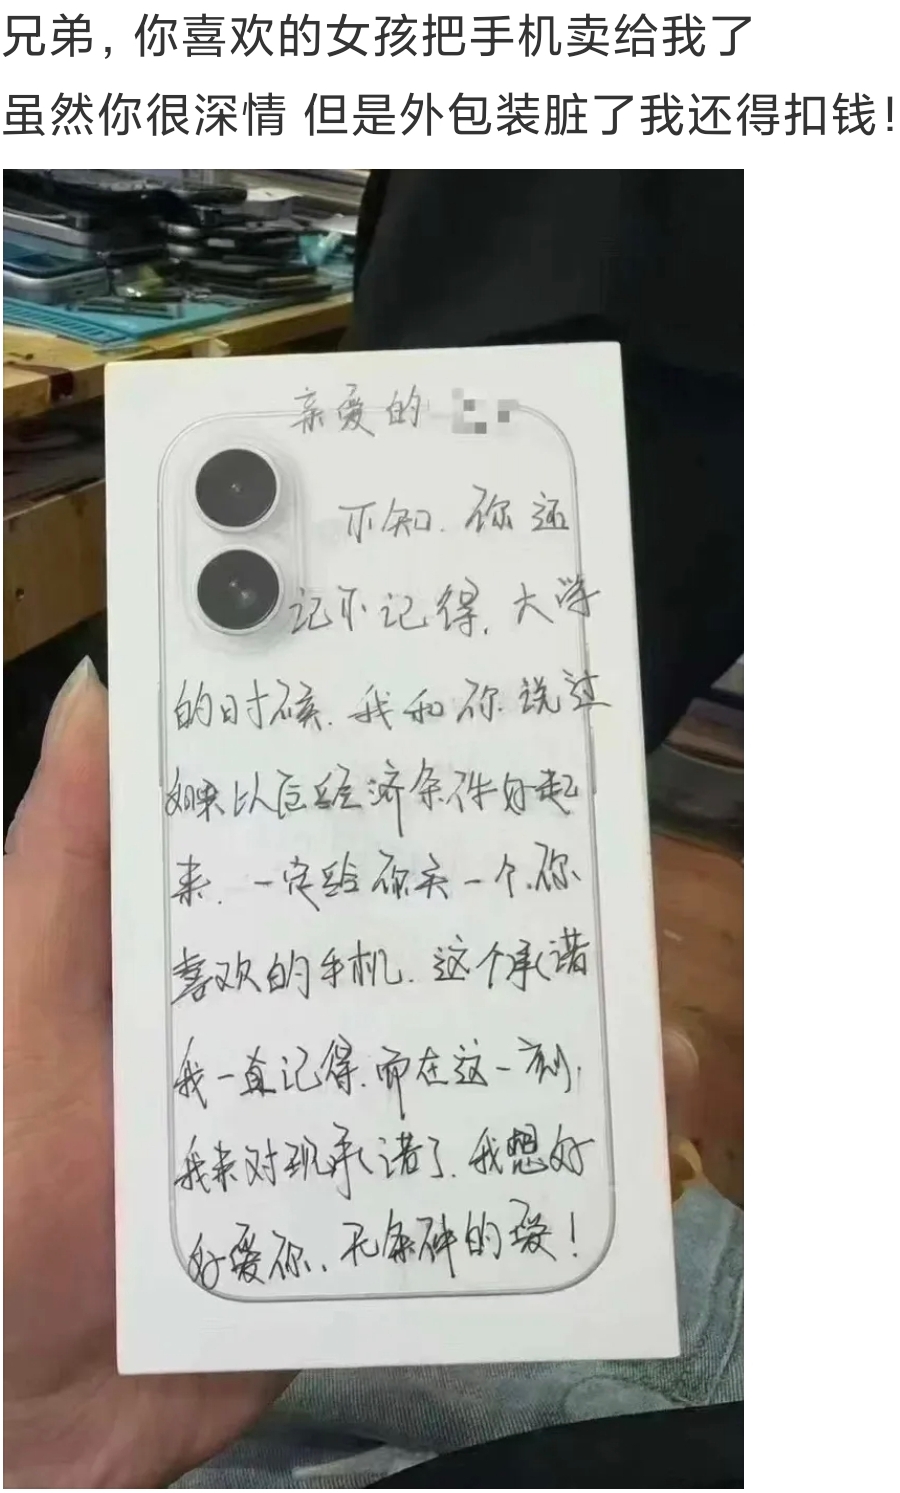 兄弟，你喜欢的女孩把手机卖给我了
虽然你很深情 但是外包装脏了我还得扣钱！
亲爱的
不知.你还
记不记得.大学
的时候.我和你.说过
如果以后经济条件好起
来.一定给你买一个.你
喜欢的手机.这个承诺
我一直记得.而在这一刻.
我来对现承诺了.我想好
好爱你.无条件的爱！